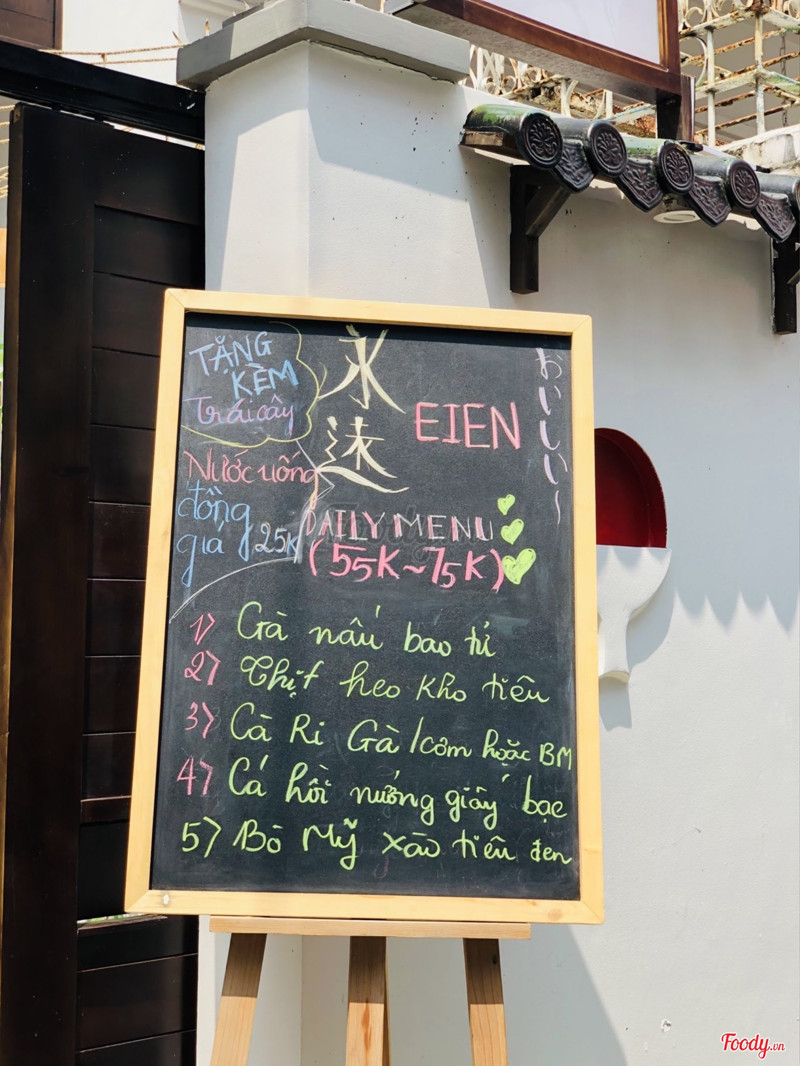 TẶNG
KÈM
Trái cây
永遠
EIEN
おいしい~
Nước uống
đồng
giá 25K
DAILY MENU
(55K~75K)
1) Gà nấu bao tử
2) Thịt heo kho tiêu
3) Cà Ri Gà/cơm hoặc BM
4) Cá hồi nướng giấy bạc
5) Bò Mỹ xào tiêu đen
Foody.vn